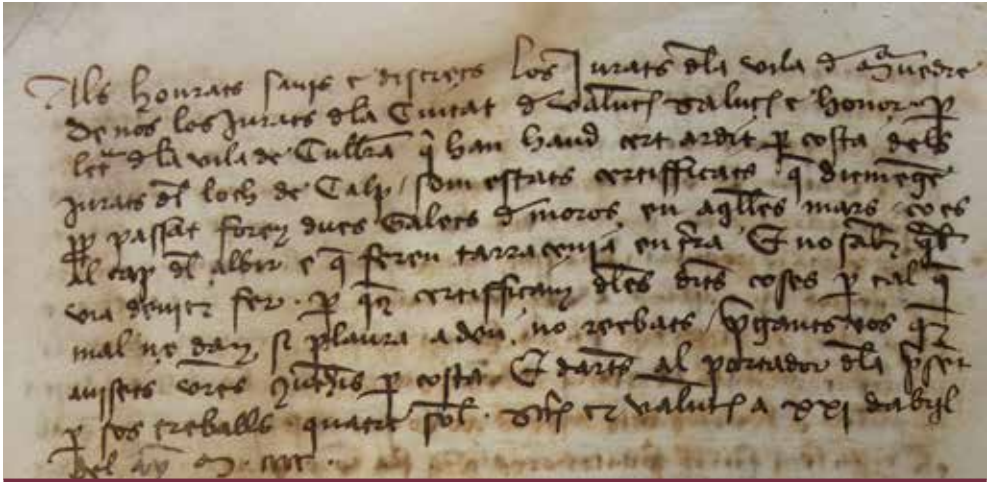 Als honrats savis e discrets los Jurats dela vila d Muredre
De nos los Jurats dla Ciutat d Valencia saluts e honor. Per
letra dla vila de Cullera q han haud cert ardit p costa dels
jurats dl loch de Calp / som estats certifficats q diemenge
pp passat foren dues Galees d moros en aqlles mars co es
Al cap dl albir e q feren tarracenia en tra E no saben ql
via deuien fer. p q certifficam dles dits coses p tal q
mal ne dan si plaura a deu no reebats / pgants vos q
avisets vres p costa. E darets al portador dla psent
p sos treballs quatre sol. Scta en Valencia a XXI dabril
Del any M